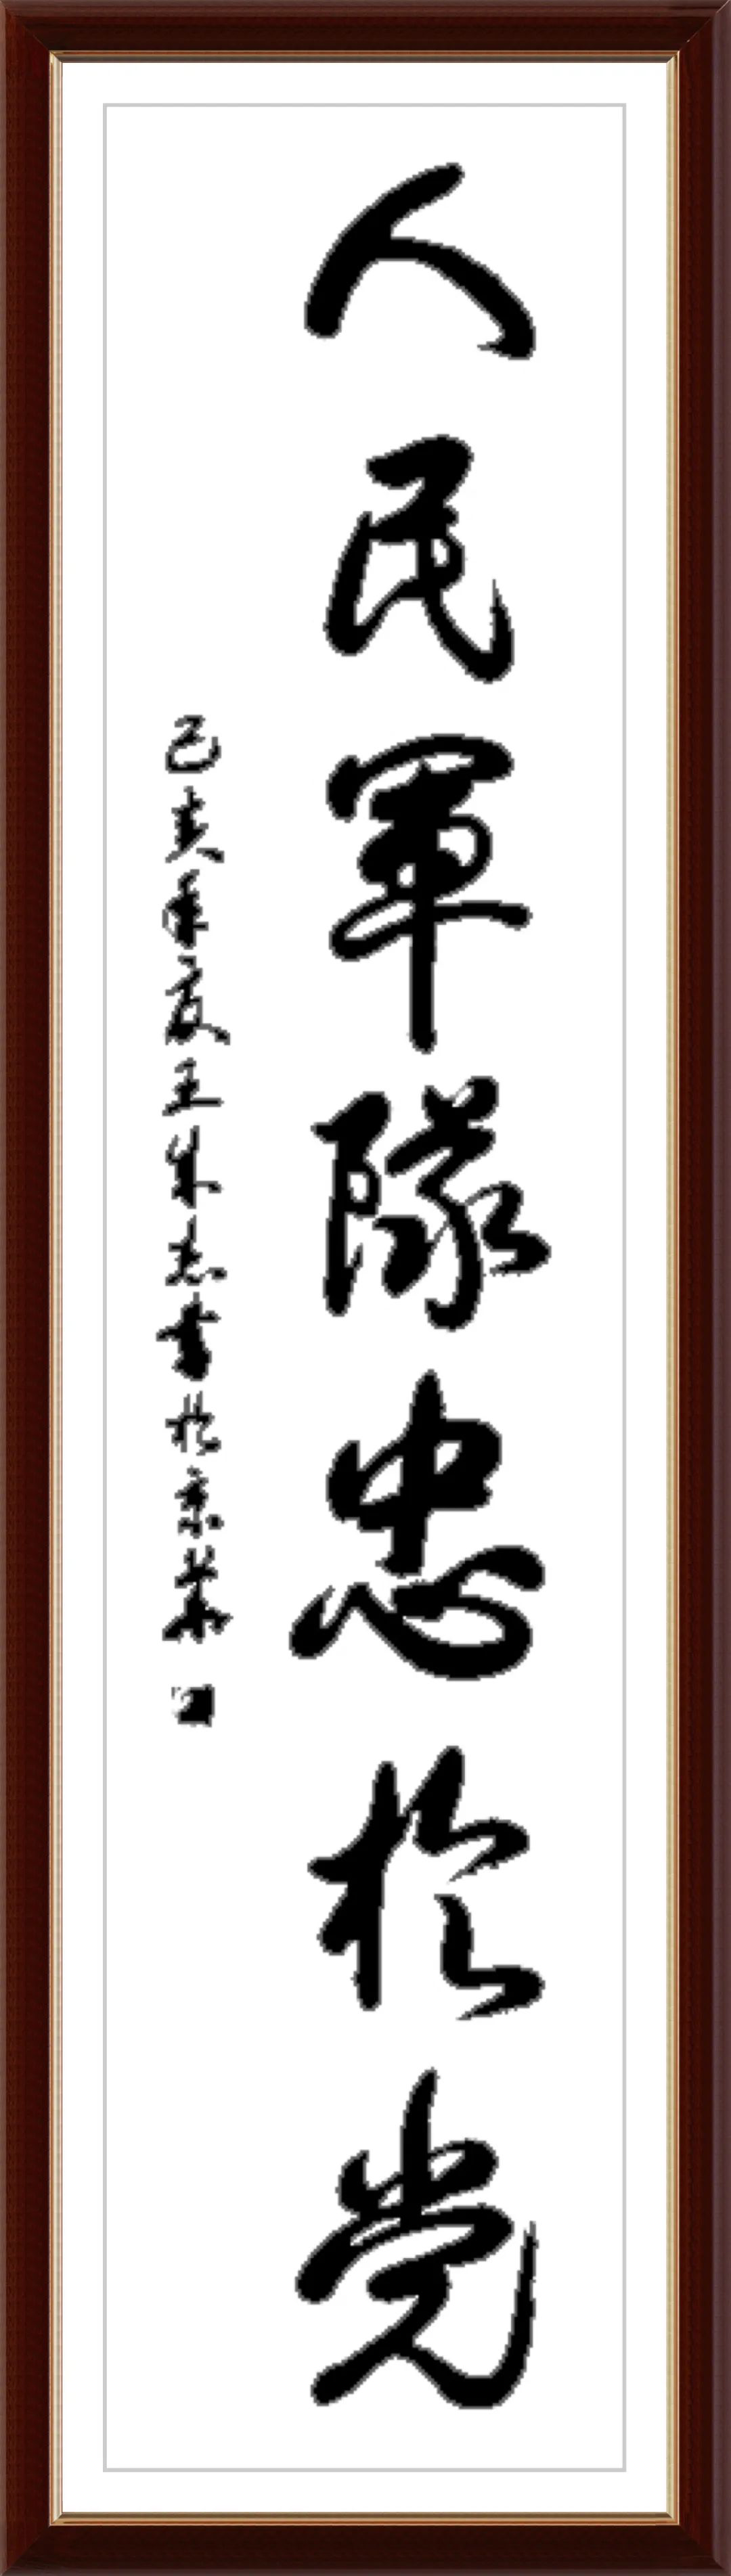 人民軍隊忠於党
己亥年夏王成志書於京華